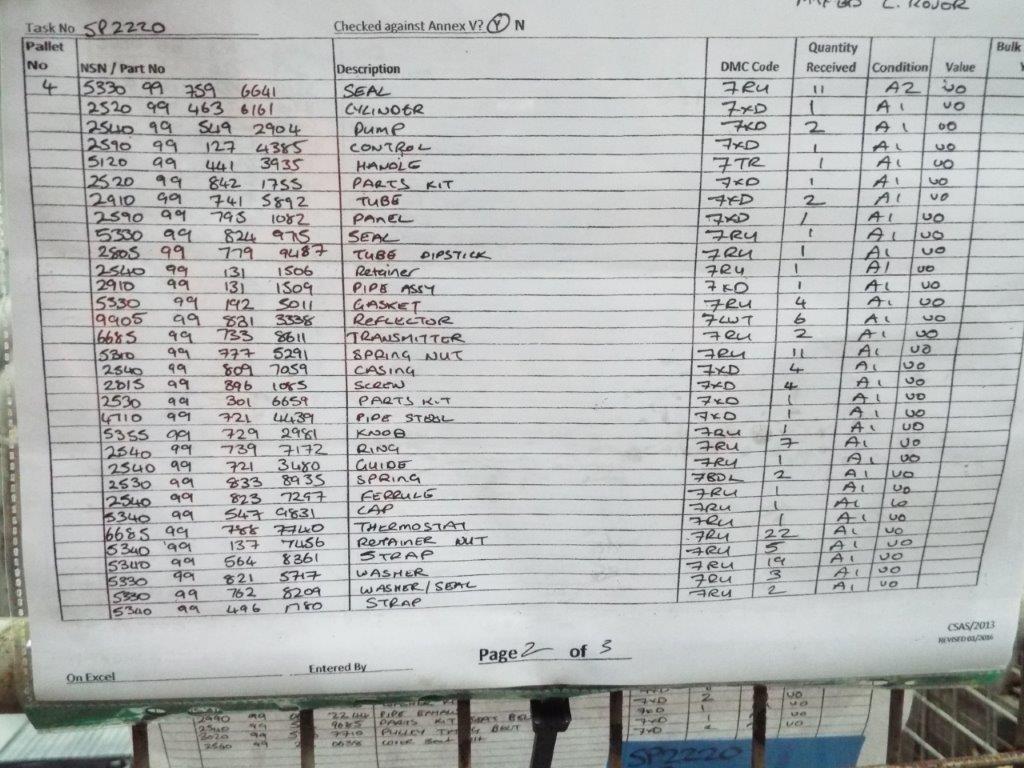 Task No SP2220 Checked against Annex V? Y N
Pallet No NSN / Part No Description DMC Code Quantity Received Condition Value Bulk
4 5330 99 759 6641 SEAL 7RU 11 A2 UO
2520 99 463 6161 CYLINDER 7XD 1 A1 UO
2540 99 549 2904 PUMP 7XD 2 A1 UO
2590 99 127 4385 CONTROL 7XD 1 A1 UO
5120 99 441 3935 HANDLE 7TR 1 A1 UO
2520 99 842 1755 PARTS KIT 7XD 1 A1 UO
2910 99 741 5892 TUBE 7XD 2 A1 UO
2590 99 795 1082 PANEL 7XD 1 A1 UO
5330 99 824 975 SEAL 7RU 1 A1 UO
2805 99 779 9487 TUBE DIPSTICK 7RU 1 A1 UO
2540 99 131 1506 Retainer 7RU 1 A1 UO
2910 99 131 1509 PIPE ASSY 7XD 1 A1 UO
5330 99 192 5011 GASKET 7RU 4 A1 UO
9905 99 831 3338 REFLECTOR 7LWT 6 A1 UO
6685 99 733 8611 TRANSMITTER 7RU 2 A1 UO
5310 99 777 5291 SPRING NUT 7RU 11 A1 UO
2540 99 809 7059 CASING 7XD 4 A1 UO
2815 99 896 1085 SCREW 7XD 4 A1 UO
2530 99 301 6659 PARTS KIT 7XD 1 A1 UO
4710 99 721 4439 PIPE STEEL 7XD 1 A1 UO
5355 99 729 2981 KNOB 7RU 1 A1 UO
2540 99 739 7172 RING 7RU 7 A1 UO
2540 99 721 3480 GUIDE 7RU 1 A1 UO
2530 99 833 8935 SPRING 7BDL 2 A1 UO
2540 99 823 7297 FERRULE 7RU 1 A1 UO
5340 99 547 9831 CAP 7RU 1 A1 UO
6685 99 788 7740 THERMOSTAT 7RU 1 A1 UO
5340 99 137 7456 RETAINER NUT 7RU 22 A1 UO
5340 99 564 8361 STRAP 7RU 5 A1 UO
5330 99 821 5717 WASHER 7RU 19 A1 UO
5330 99 762 8209 WASHER/SEAL 7RU 3 A1 UO
5340 99 496 1780 STRAP 7RU 2 A1 UO
CSAS/2013
REVISED 03/2016
Page 2 of 3
On Excel Entered By
2990 99 PIPE 7XD 1 UO
2540 99 9685 PARTS KIT SEAT 7XD 1 UO
PULLEY BOLT
SP2220